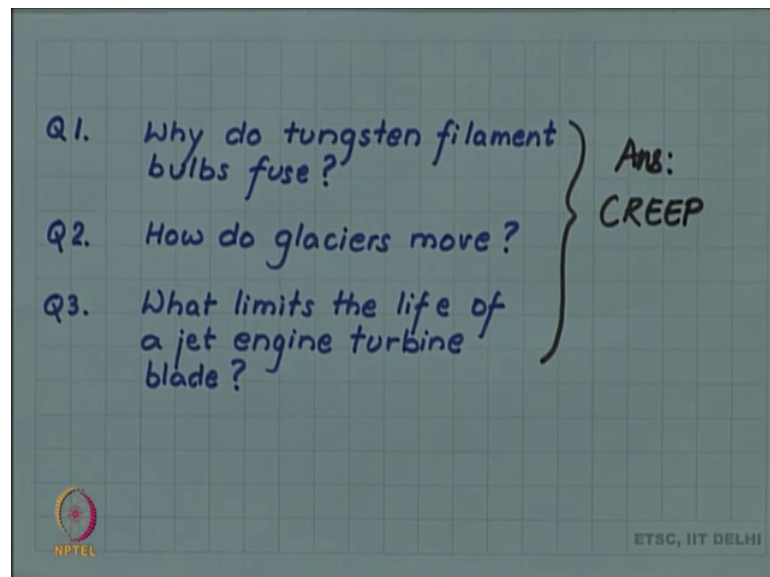 Q1. Why do tungsten filament
bulbs fuse?
Q2. How do glaciers move?
Q3. What limits the life of
a jet engine turbine
blade?
Ans:
CREEP
NPTEL
ETSC, IIT DELHI